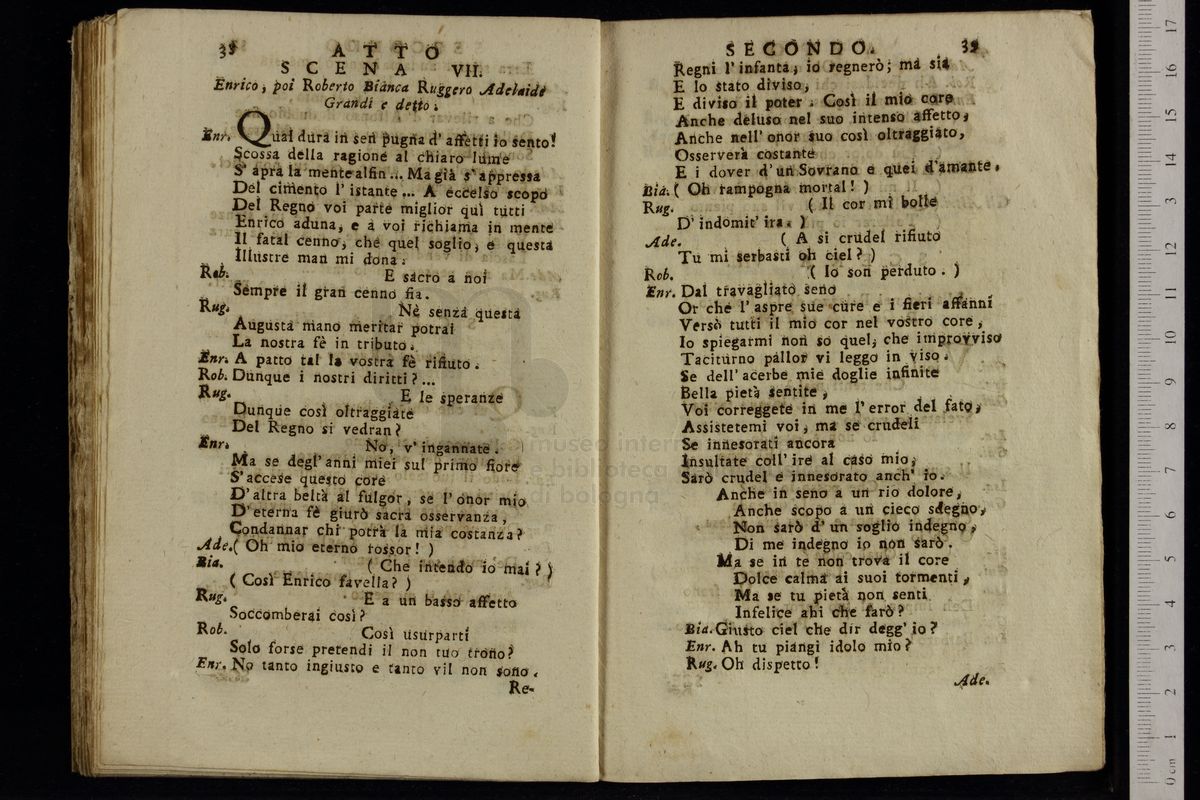 38
ATTO
SCENA VII.
Enrico, poi Roberto Bianca Ruggero Adelaide
Grandi e detto.
Enr. Qual dura in sen pugna d' affetti io sento!
Scossa della ragione al chiaro lume
S' apra la mente alfin... Ma già s' appressa
Del cimento l' istante... A eccelso scopo
Del Regno voi parte miglior quì tutti
Enrico aduna, e a voi richiama in mente
Il fatal cenno, che quel soglio, e questa
Illustre man mi dona.
Rob. E sacro a noi
Sempre il gran cenno fia.
Rug. Nè senza questa
Augusta mano meritar potrai
La nostra fè in tributo.
Enr. A patto tal la vostra fè rifiuto.
Rob. Dunque i nostri diritti?...
Rug. E le speranze
Dunque così oltraggiate
Del Regno si vedran?
Enr. No, v' ingannate.
Ma se degl' anni miei sul primo fiore
S' accese questo core
D' altra beltà al fulgor, se l' onor mio
D' eterna fè giurò sacra osservanza,
Condannar chi potrà la mia costanza?
Ade. ( Oh mio eterno rossor! )
Bia. ( Che intendo io mai? )
( Così Enrico favella? )
Rug. E a un basso affetto
Soccomberai così?
Rob. Così usurparti
Solo forse pretendi il non tuo trono?
Enr. No tanto ingiusto e tanto vil non sono.
Re-
SECONDO. 39
Regni l' infanta, io regnerò; ma sia
E lo stato diviso,
E diviso il poter. Così il mio core
Anche deluso nel suo intenso affetto,
Anche nell' onor suo così oltraggiato,
Osserverà costante
E i dover d' un Sovrano e quei d'amante.
Bia. ( Oh rampogna mortal! )
Rug. ( Il cor mi bolle
D' indomit' ira. )
Ade. ( A si crudel rifiuto
Tu mi serbasti oh ciel? )
Rob. ( Io son perduto. )
Enr. Dal travagliato seno
Or che l' aspre sue cure e i fieri affanni
Versò tutti il mio cor nel vostro core,
Io spiegarmi non so quel, che improvviso
Taciturno pallor vi leggo in viso.
Se dell' acerbe mie doglie infinite
Bella pietà sentite,
Voi correggete in me l' error del fato,
Assistetemi voi, ma se crudeli
Se innesorati ancora
Insultate coll' ire al caso mio,
Sarò crudel e innesorato anch' io.
Anche in seno a un rio dolore,
Anche scopo a un cieco sdegno,
Non sarò d' un soglio indegno,
Di me indegno io non sarò.
Ma se in te non trova il core
Dolce calma ai suoi tormenti,
Ma se tu pietà non senti
Infelice ahi che farò?
Bia. Giusto ciel che dir degg' io?
Enr. Ah tu piangi idolo mio?
Rug. Oh dispetto!
Ade.